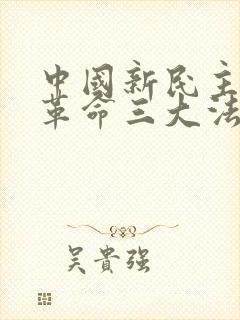 中國新民主
革命三大法
吴貴强